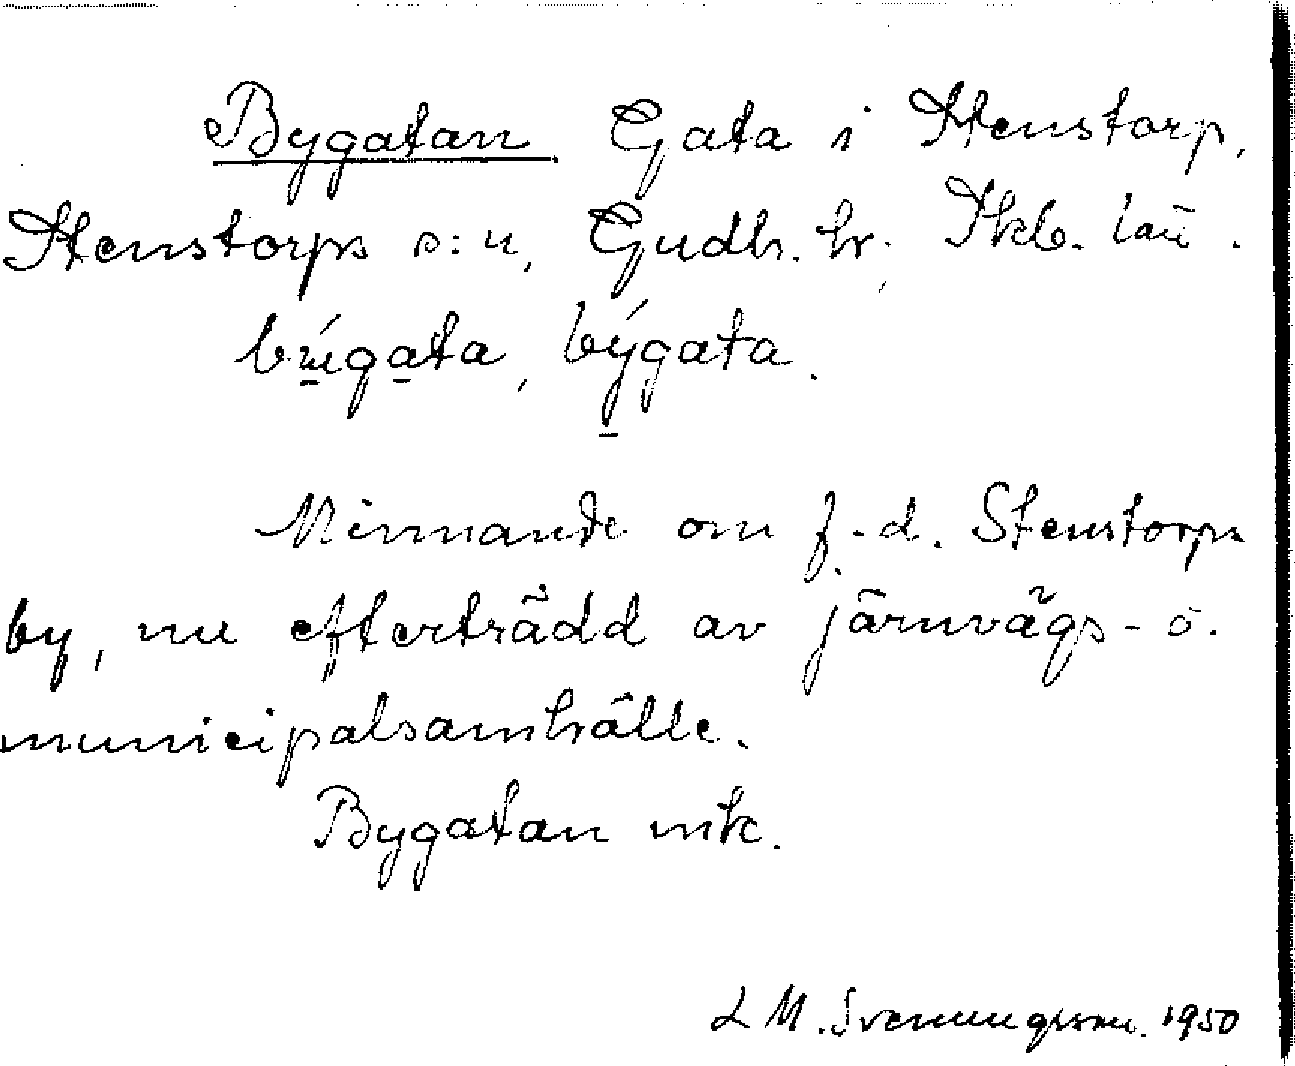 Bygatan Gata i Stenstorp,
Stenstorps s:n, Gudh. hr, Skb. län.
býgata, býgata.
Minnande om f.d. Stenstorps
by, nu efterträdd av järnvägs- o.
municipalsamhälle.
Bygatan mk.
L M. Svenungsson. 1950